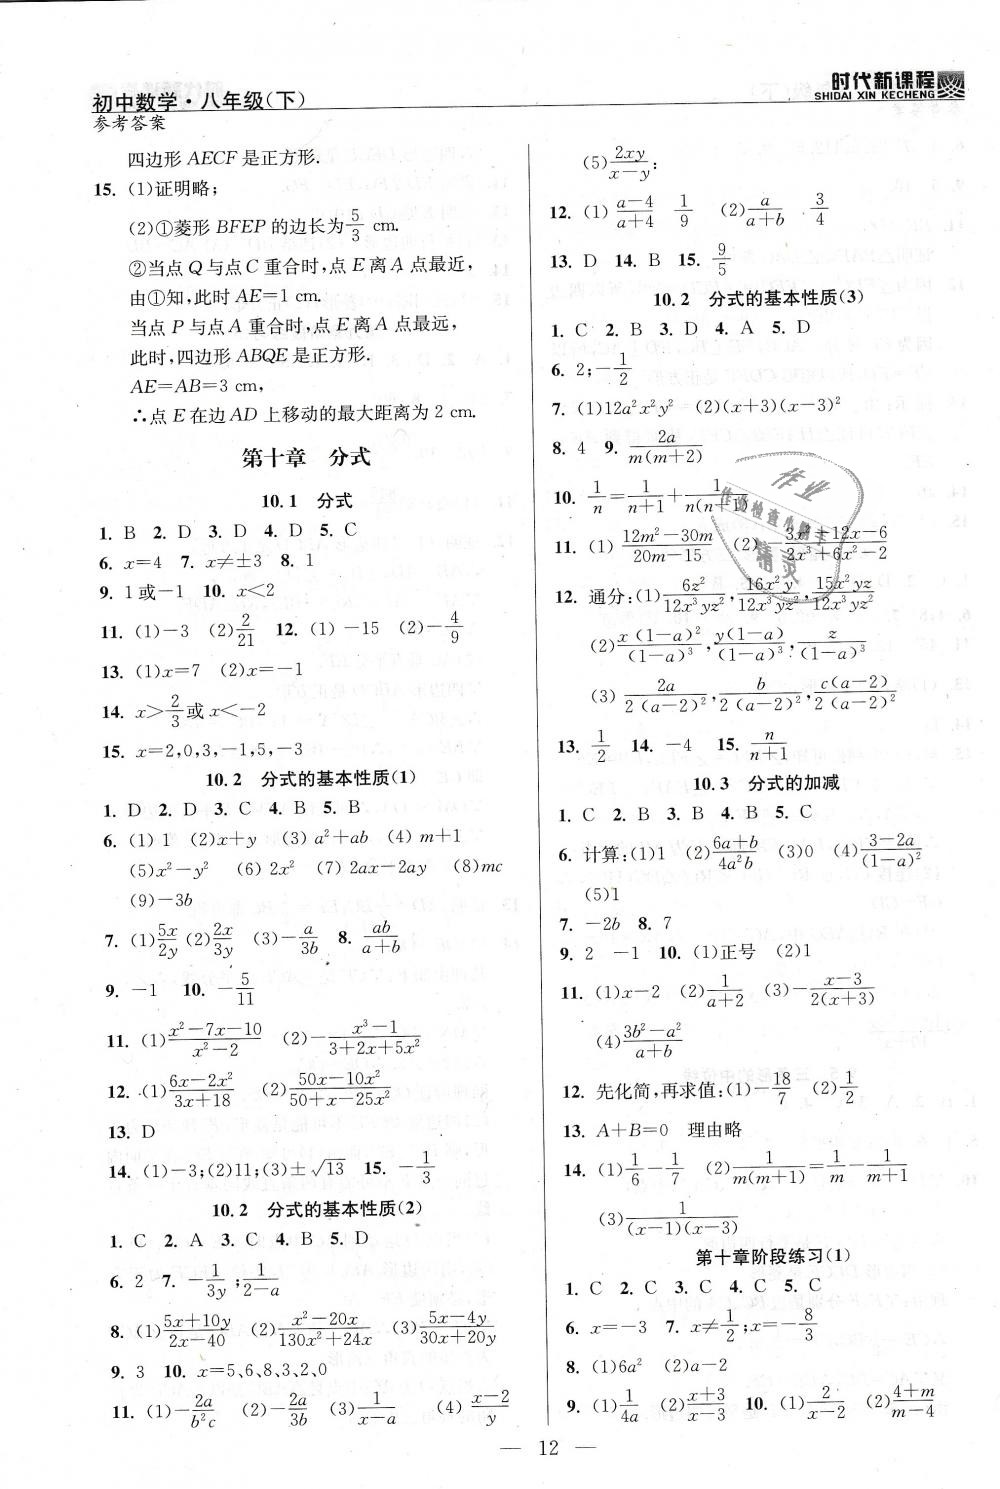 初中数学·八年级(下)
参考答案
时代新课程
SHIDAI XIN KECHENG
四边形 AECF 是正方形.
15. (1)证明略;
(2)①菱形 BFEP 的边长为 5/3 cm.
②当点 Q 与点 C 重合时,点 E 离 A 点最近,
由①知,此时 AE=1 cm.
当点 P 与点 A 重合时,点 E 离 A 点最远,
此时,四边形 ABQE 是正方形.
AE=AB=3 cm,
∴点 E 在边 AD 上移动的最大距离为 2 cm.
第十章 分式
10.1 分式
1. B 2. D 3. D 4. D 5. C
6. x=4 7. x≠±3 8. 1
9. 1或-1 10. x<2
11. (1)-3 (2)2/21 12. (1) -15 (2)-4/9
13. (1)x=7 (2)x=-1
14. x>2/3或x<-2
15. x=2,0,3,-1,5,-3
10.2 分式的基本性质(1)
1. D 2. D 3. C 4. B 5. B
6. (1) 1 (2)x+y (3) a²+ab (4) m+1
(5)x²-y² (6) 2x² (7) 2ax-2ay (8)mc
(9)-3b
7. (1)5x/2y (2)2x/3y (3)-a/3b 8. ab/(a+b)
9. -1 10. -5/11
11. (1)(x²-7x-10)/(x²-2) (2)-(x³-1)/(3+2x+5x²)
12. (1)(6x-2x²)/(3x+18) (2)(50x-10x²)/(50+x-25x²)
13. D
14. (1)-3;(2)11;(3)±√13 15. -1/3
10.2 分式的基本性质(2)
1. C 2. A 3. C 4. B 5. D
6. 2 7. -1/3y;1/(2-a)
8. (1)(5x+10y)/(2x-40) (2)(x²-20x)/(130x²+24x) (3)(5x-4y)/(30x+20y)
9. 3 10. x=5、6、8、3、2、0
11. (1)-2a/b²c (2)-2a/3b (3)1/(x-a) (4)(x-2)/y
(5)2xy/(x-y);
12. (1)(a-4)/(a+4) 1/9 (2)a/(a+b) 3/4
13. D 14. B 15. 9/5
10.2 分式的基本性质(3)
1. C 2. B 3. D 4. A 5. D
6. 2;-1/2
7. (1)12a²x²y² (2)(x+3)(x-3)²
8. 4 9. 2a/(m(m+2))
10. 1/n=1/(n+1)+1/(n(n+1))
11. (1)(12m²-30m)/(20m-15) (2)
12. 通分:(1)6z²/12x³yz²,16x²y/12x³yz²,15x²yz/12x³yz²
(2)x(1-a)²/(1-a)³,y(1-a)/(1-a)³,z/(1-a)³
(3)2a/2(a-2)²,b/2(a-2)²,c(a-2)/2(a-2)²
13. 1/2 14. -4 15. n/(n+1)
10.3 分式的加减
1. C 2. B 3. B 4. B 5. C
6. 计算:(1)1 (2)(6a+b)/4a²b (3)0 (4)(3-2a)/(1-a)²
(5)1
7. -2b 8. 7
9. 2 -1 10. (1)正号 (2)1
11. (1)x-2 (2)1/(a+2) (3)-(x-3)/(2(x+3))
(4)(3b²-a²)/(a+b)
12. 先化简,再求值:(1)-18/7 (2)1/2
13. A+B=0 理由略
14. (1)1/6-1/7 (2)1/(m(m+1))=1/m-1/(m+1)
(3)1/((x-1)(x-3))
第十章阶段练习(1)
1. C 2. C 3. C 4. C 5. C
6. x=-3 7. x≠1/2;x=-8/3
8. (1)6a² (2)a-2
9. (1)1/4a (2)(x+3)/(x-3) 10. (1)2/(x-2) (2)(4+m)/(m-4)
作业
作业检查小助手
精灵
— 12 —